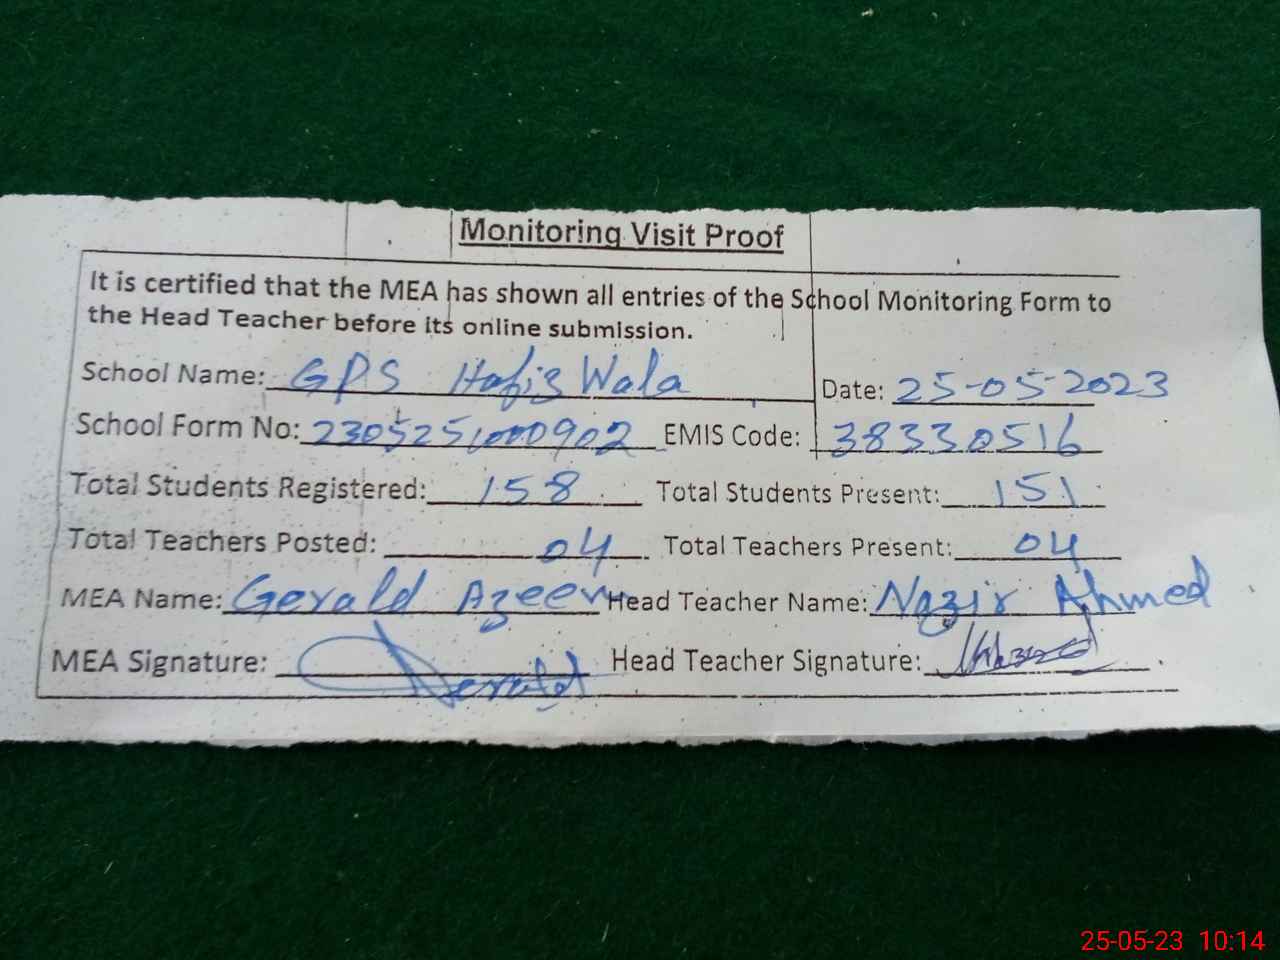 Monitoring Visit Proof
It is certified that the MEA has shown all entries of the School Monitoring Form to
the Head Teacher before its online submission.
School Name: GPS Hafiz Wala Date: 25-05-2023
School Form No: 2305251000902 EMIS Code: 38330516
Total Students Registered: 158 Total Students Present: 151
Total Teachers Posted: 04 Total Teachers Present: 04
MEA Name: Gerald Azeem Head Teacher Name: Nazir Ahmed
MEA Signature: Gerald Head Teacher Signature:
25-05-23 10:14